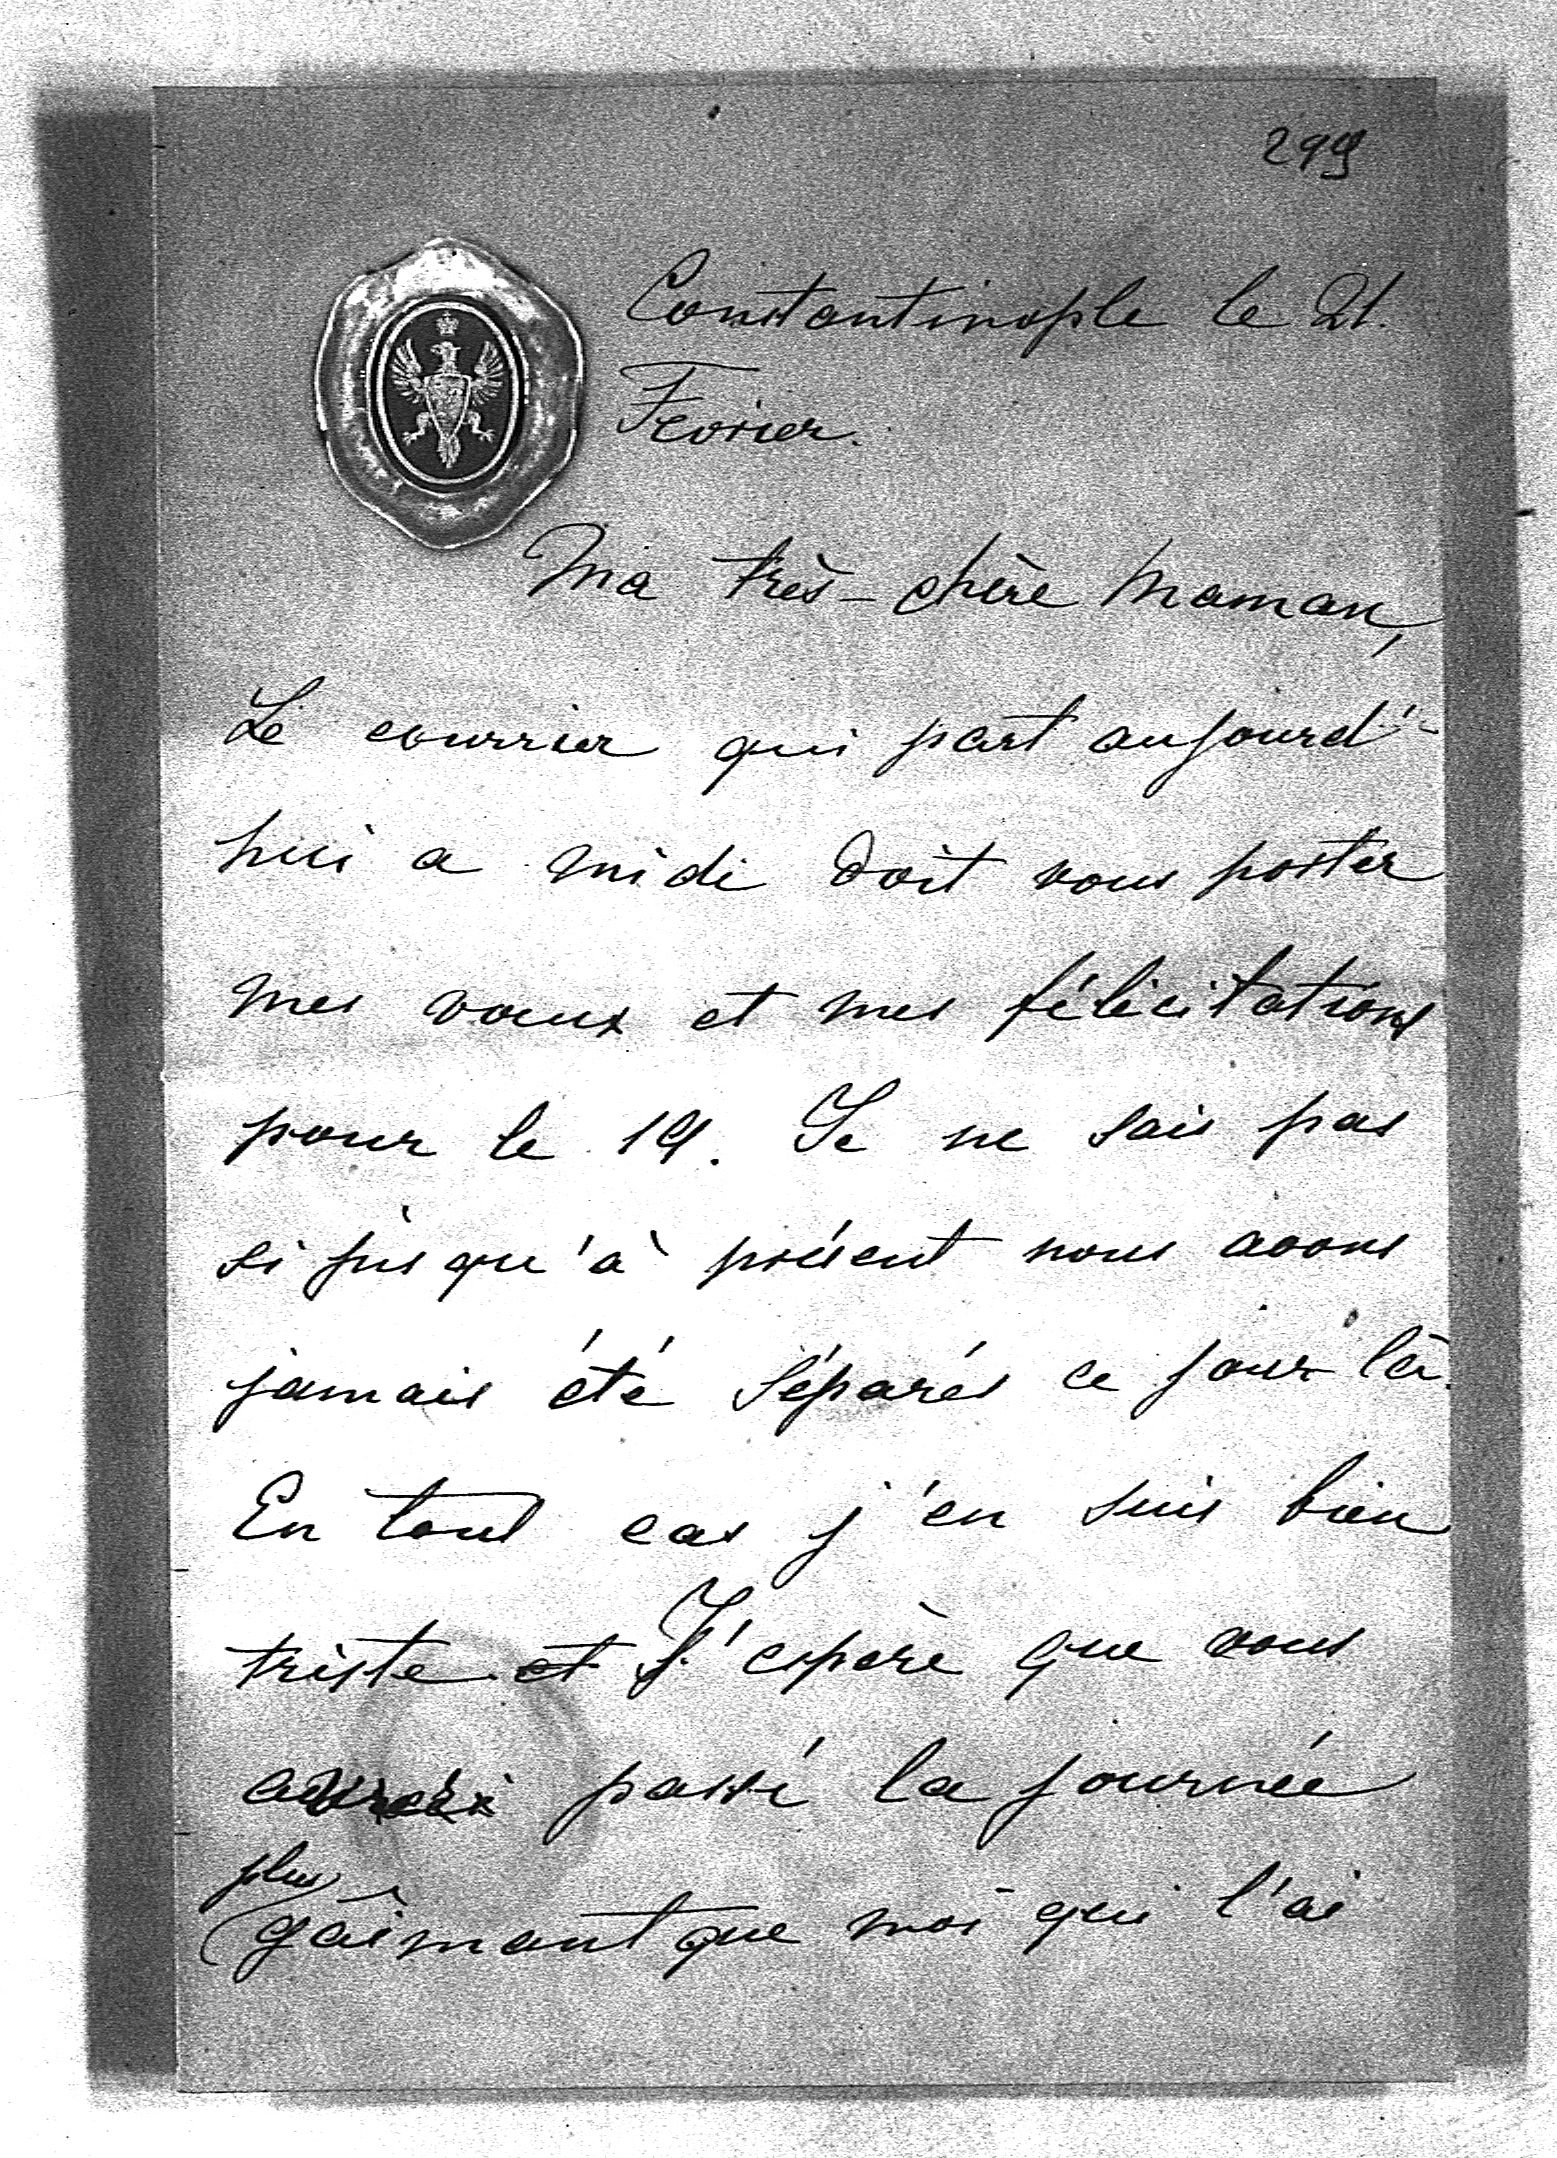 299
Constantinople le 21.
Fevrier.
Ma très-chère Maman,
Le courrier qui part aujourd'-
hui a midi doit vous porter
mes vœux et mes félicitations
pour le 19. Je ne sais pas
si jusqu'à présent nous avons
jamais été séparés ce jour là.
En tout cas j'en suis bien
triste et J'espère que vous
passé la journée
plus
gaîmant que moi qui l'ai